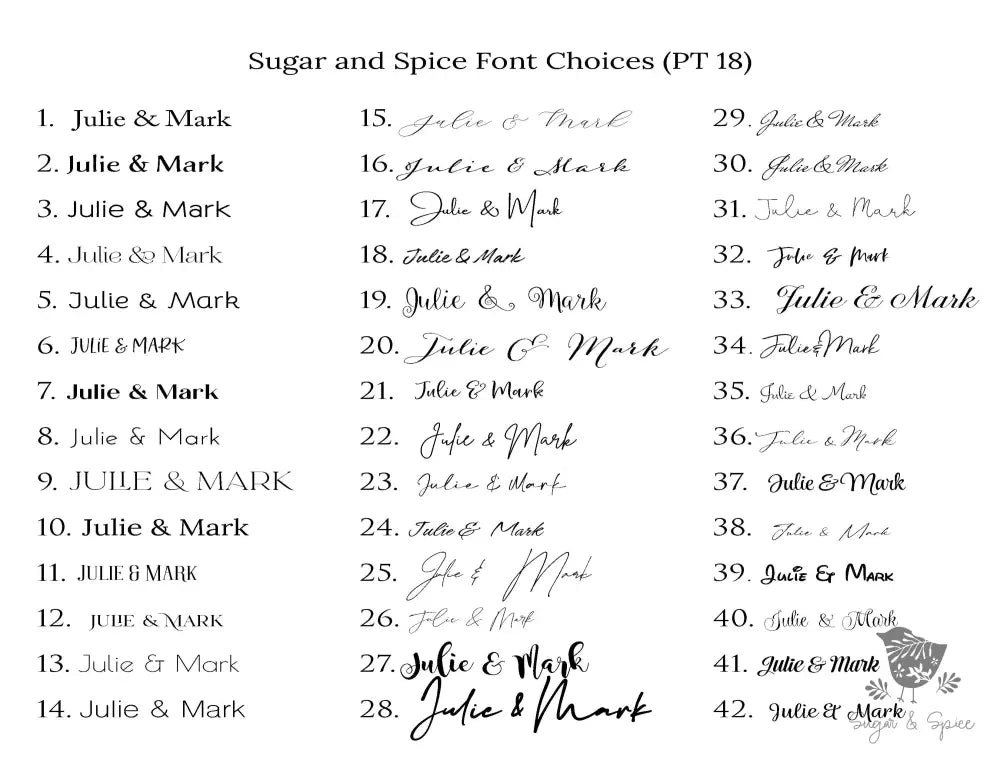 Sugar and Spice Font Choices (PT 18)
1. Julie & Mark
2. Julie & Mark
3. Julie & Mark
4. Julie & Mark
5. Julie & Mark
6. JULIE & MARK
7. Julie & Mark
8. Julie & Mark
9. JULIE & MARK
10. Julie & Mark
11. JULIE & MARK
12. JULIE & MARK
13. Julie & Mark
14. Julie & Mark
15. Julie & Mark
16. Julie & Mark
17. Julie & Mark
18. Julie & Mark
19. Julie & Mark
20. Julie & Mark
21. Julie & Mark
22. Julie & Mark
23. Julie & Mark
24. Julie & Mark
25. Julie & Mark
26. Julie & Mark
27. Julie & Mark
28. Julie & Mark
29. Julie & Mark
30. Julie & Mark
31. Julie & Mark
32. Julie & Mark
33. Julie & Mark
34. Julie & Mark
35. Julie & Mark
36. Julie & Mark
37. Julie & Mark
38. Julie & Mark
39. Julie & Mark
40. Julie & Mark
41. Julie & Mark
42. Julie & Mark
Sugar & Spice